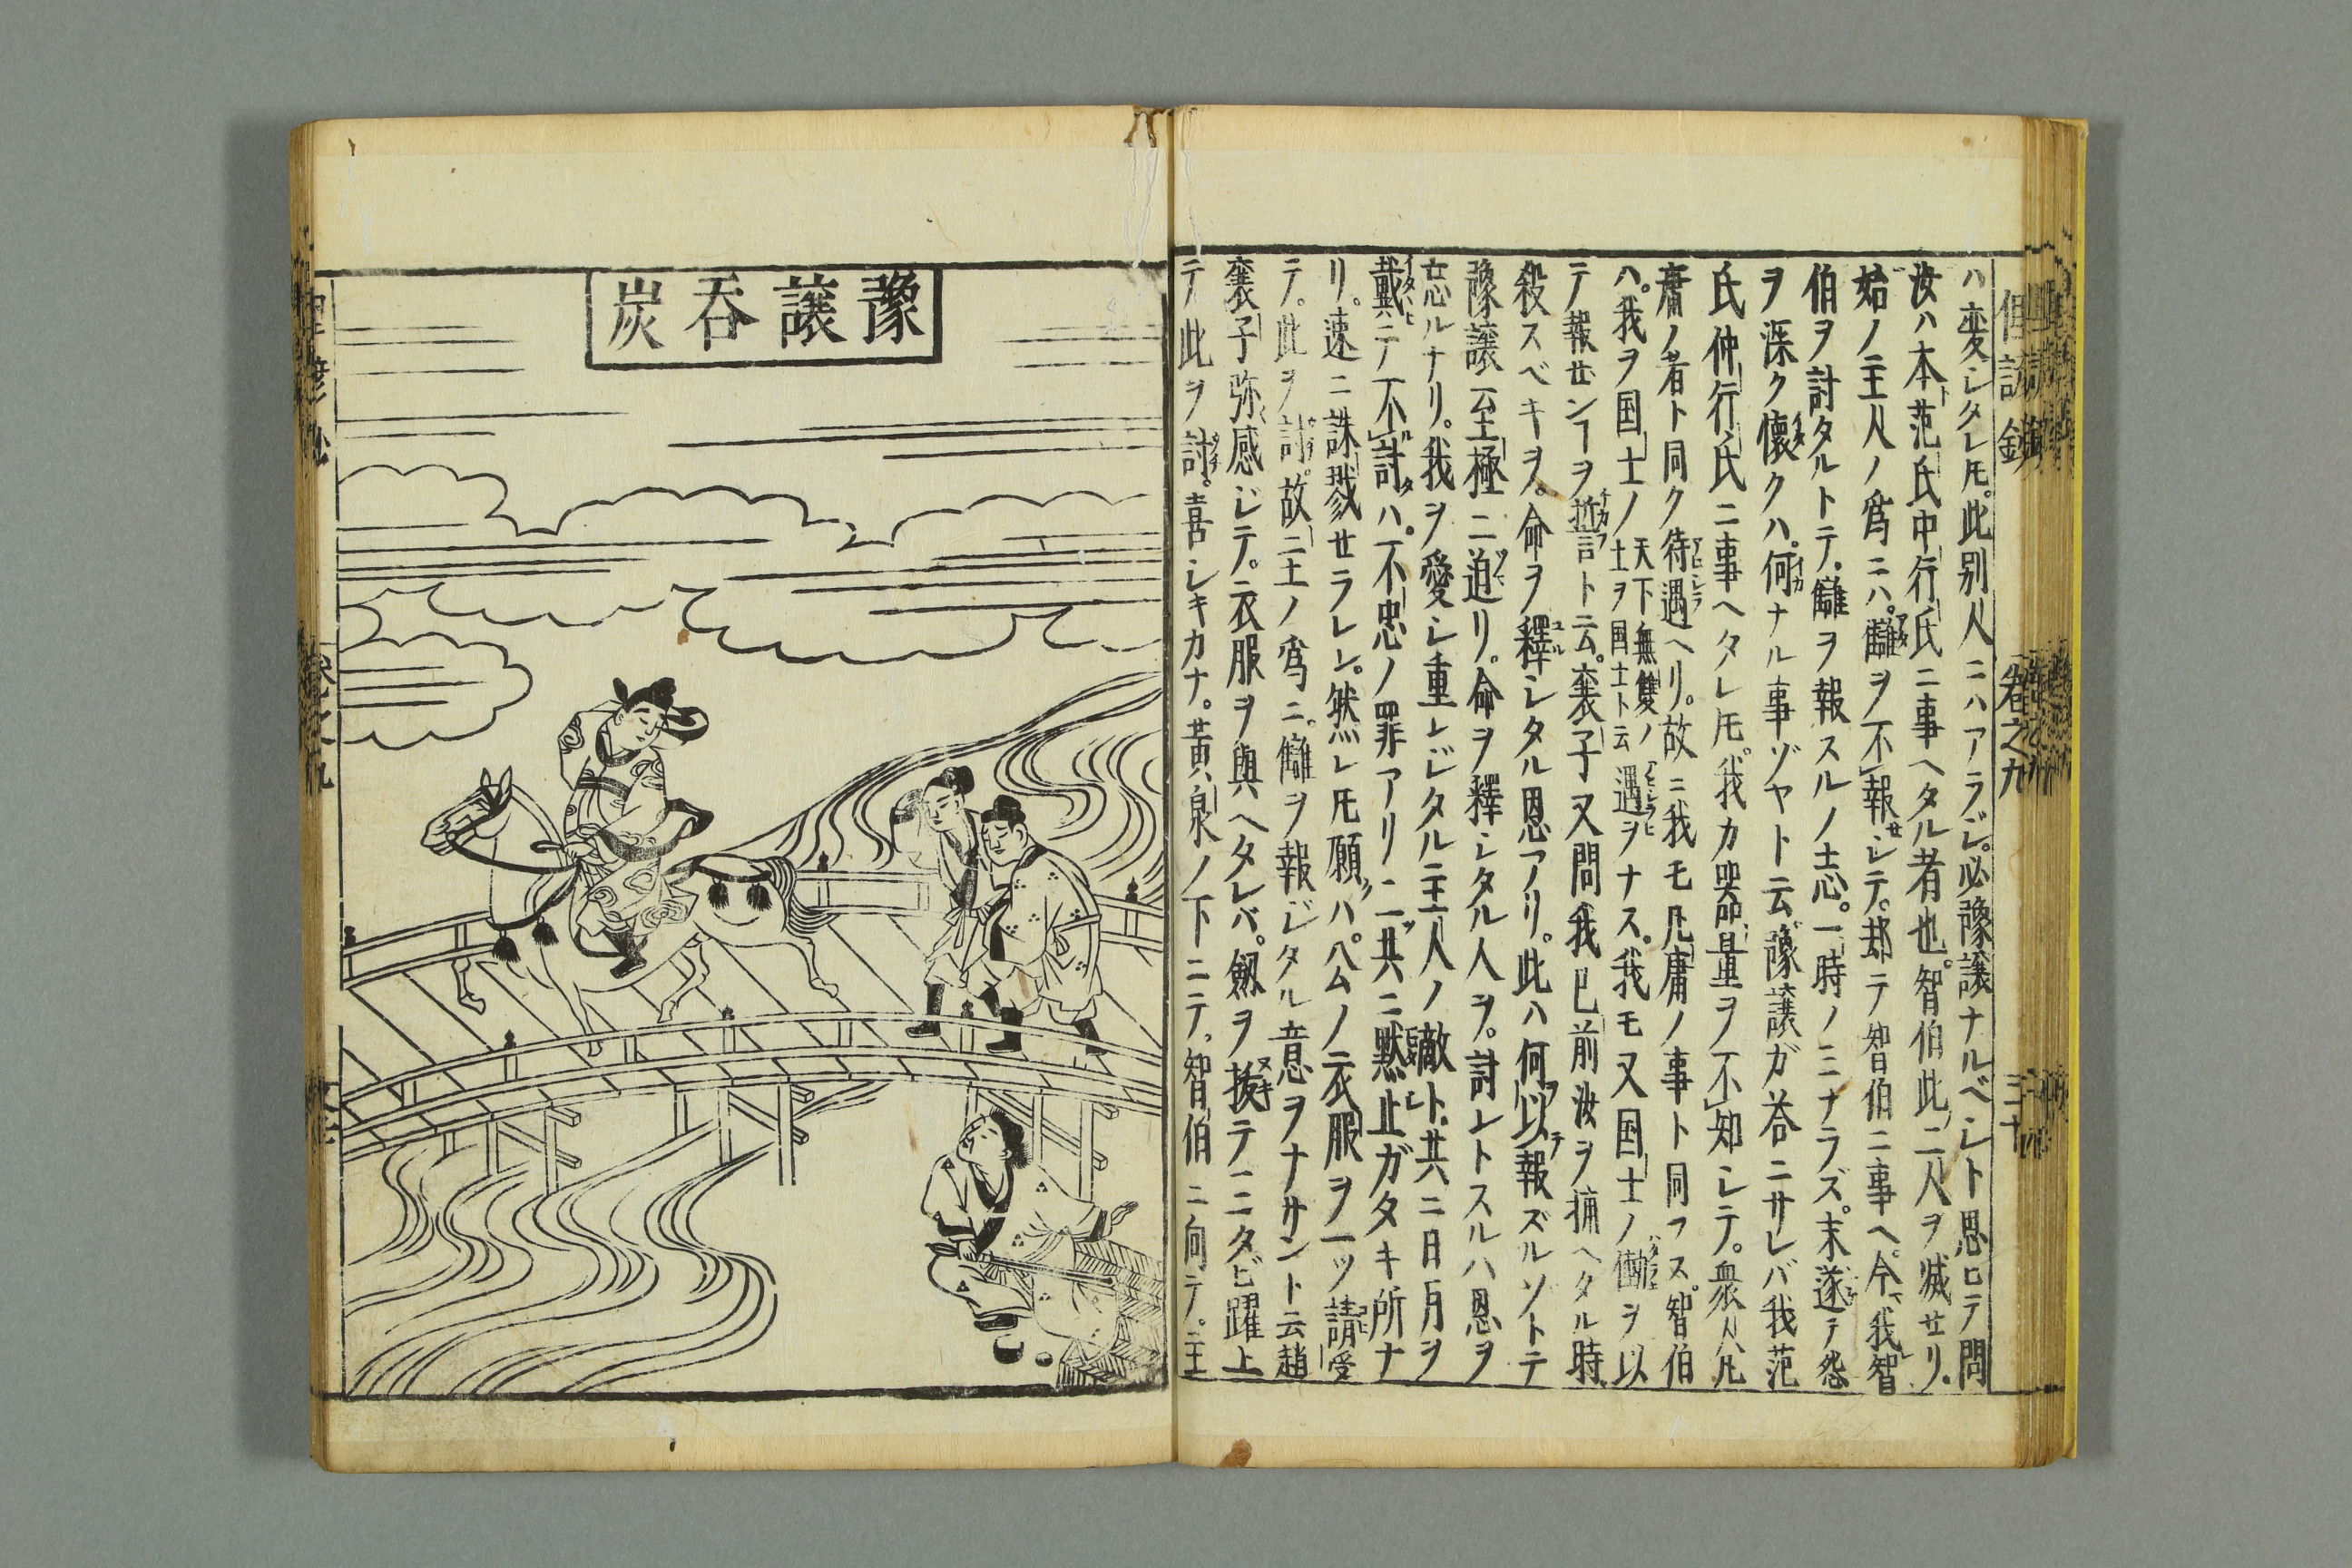 ハ変シタレ𪜈。此別人ニハアラジ。必豫譲ナルベシト思ロテ問
汝ハ本范氏中行氏ニ事ヘタル者也。智伯此二人ヲ滅せリ。
始ノ主人ノ爲ニハ。讎ヲ不報シテ。却テ智伯ニ事ヘ。今我智
伯ヲ討タルトテ。讎ヲ報スルノ志。一時ノミナラズ。末遂テ怨
ヲ深ク懐クハ。何ナル事ゾヤト云。豫譲ガ荅ニサレバ我范
氏仲行氏ニ事ヘタレ𪜈。我カ器量ヲ不知シテ。衆人凡
庸ノ者ト同ク待遇ヘリ。故ニ我モ凡庸ノ事ト同フス。智伯
ハ。我ヲ国士ノ天下無雙ノ士ヲ国士ト云遇ヲナス。我モ又国士ノ働ヲ以
テ報せンヿヲ誓言ト云。襄子又問我已前汝ヲ捕ヘタル時
殺スベキヲ。命ヲ釋シタル恩アリ。此ハ何以報ズルソトテ
豫譲云至極ニ迫リ。命ヲ釋シタル人ヲ。討レトスルハ恩ヲ
忘ルナリ。我ヲ愛シ重レジタル主人ノ敵ト。共ニ日月ヲ
戴テ不討ハ。不忠ノ罪アリ二共ニ黙止ガタキ所ナ
リ。速ニ誅戮せラレン。然レ𪜈願ハ。公ノ衣服ヲ一ツ請受
テ。此ヲ討。故主ノ爲ニ。讎ヲ報ジタル意ヲナサント云趙
襄子弥感ジテ。衣服ヲ與ヘタレバ。劔ヲ拔テ三タビ躍上
テ此ヲ討。喜シキカナ。黄泉ノ下ニテ。智伯ニ向テ。主
豫譲呑炭
卷之九
三十